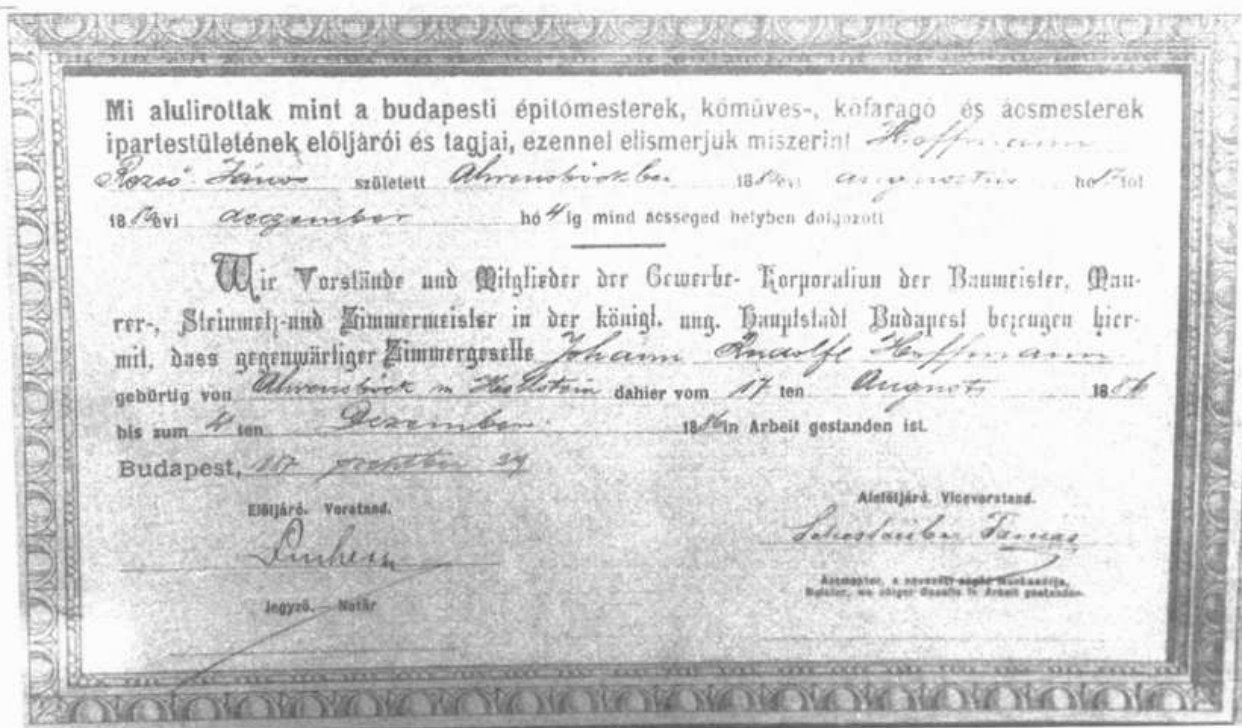 Mi alulirottak mint a budapesti épitőmesterek, kőmüves-, kőfaragó és ácsmesterek
ipartestületének előljárói és tagjai, ezennel elismerjük miszerint Hoffmann
Rezső János született Ahrensböckben 1886 évi augusztus hó 17 től
1886 évi deczember hó 4 ig mind ácssegéd helyben dolgozott
Wir Vorstände und Mitglieder der Gewerbe- Korporation der Baumeister, Mau-
rer-, Steinmetz-und Zimmermeister in der königl. ung. Hauptstadt Budapest bezeugen hier-
mit, dass gegenwärtiger Zimmergeselle Johann Rudolf Hoffmann
gebürtig von Ahrensböck in Holstein dahier vom 17 ten August 1886
bis zum 4 ten Dezember 1886 in Arbeit gestanden ist.
Budapest, 29
Előljáró. Vorstand.
Alelőljáró. Vicevorstand.
Tamás
Jegyző. - Notär
Ácsmester, a nevezett segéd munkaadója,
Meister, wo obiger Geselle in Arbeit gestanden.